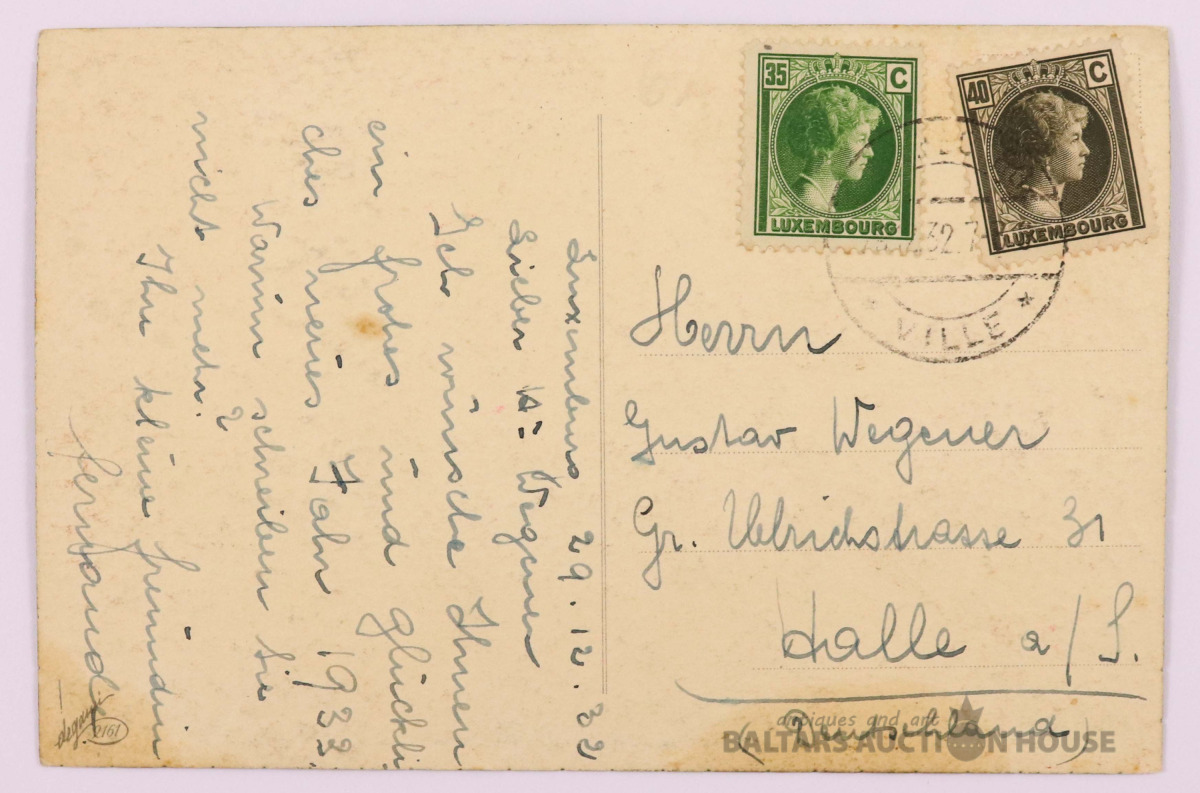 35 C
LUXEMBOURG
40 C
LUXEMBOURG
* VILLE *
Luxemburg 29.12.32
Lieber H: Wegener
Ich wünsche Ihnen
ein frohes und glückli
ches neues Jahr 1933.
Warum schreiben Sie
nicht mehr. ?
Ihr kleine freundin
Herrn
Gustav Wegener
Gr. Ulrichstrasse 31
Halle a/S.
(Deutschland)
2161
antiques and art
BALTARS AUCTION HOUSE